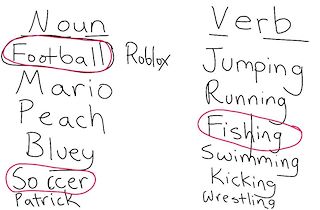 Noun
Football Roblox
Mario
Peach
Bluey
Soccer
Patrick
Verb
Jumping
Running
Fishing
Swimming
Kicking
Wrestling